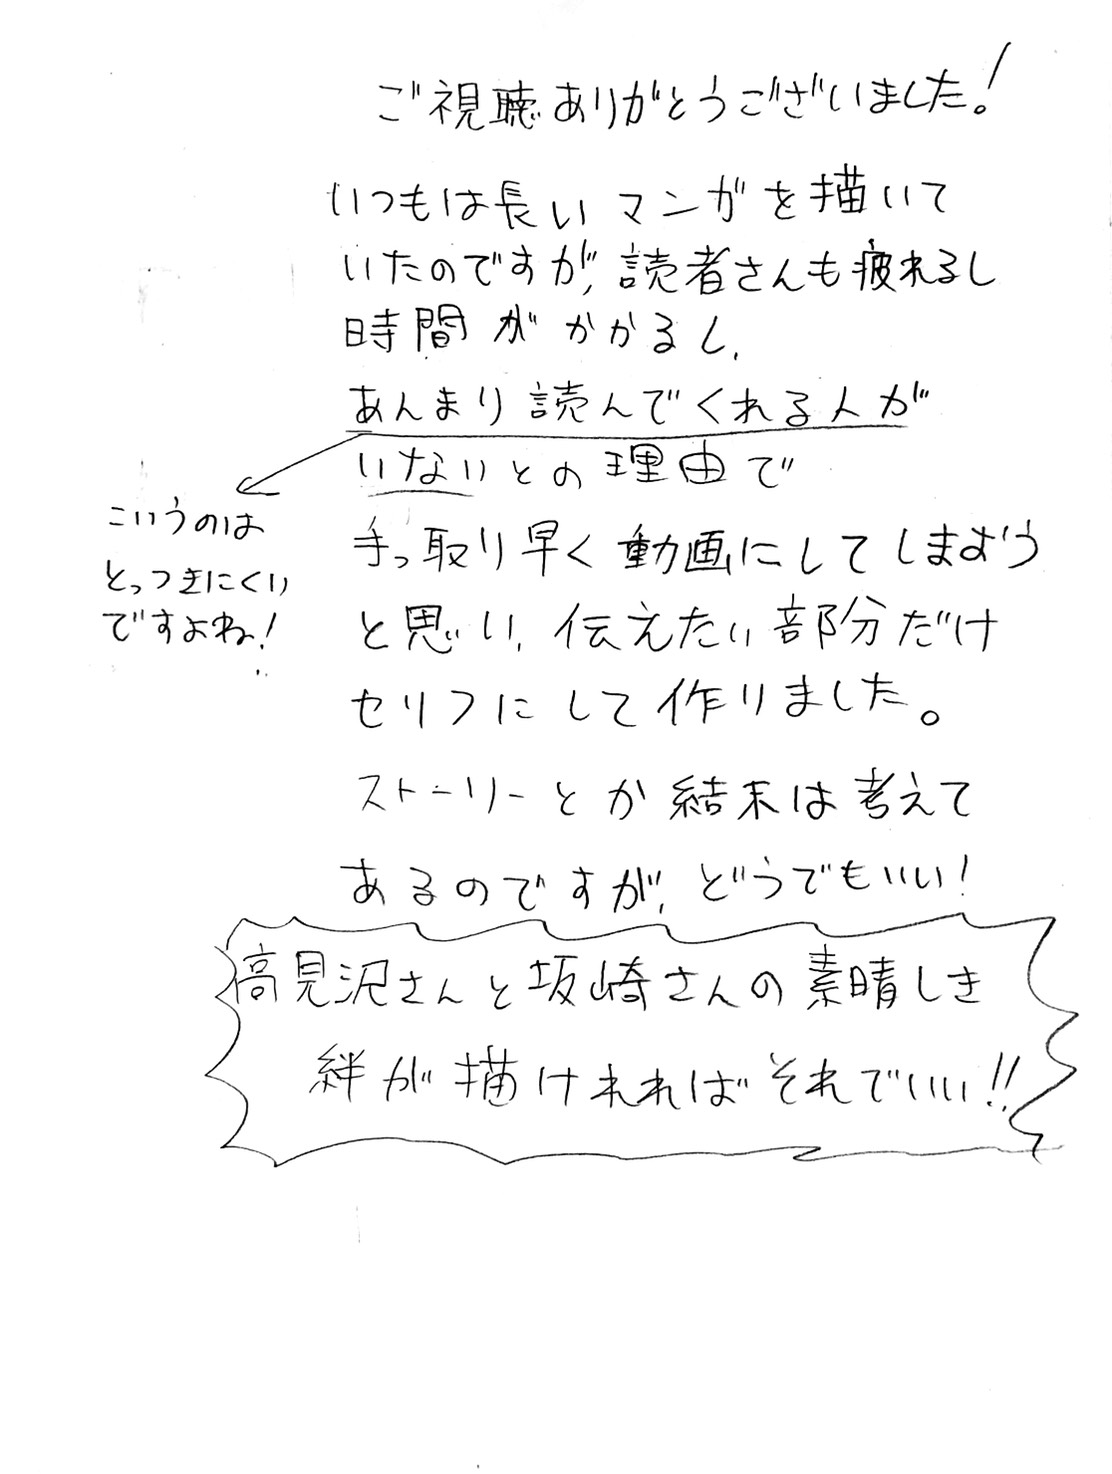 ご視聴ありがとうございました!
いつもは長いマンガを描いて
いたのですが、読者さんも疲れるし
時間がかかるし、
あんまり読んでくれる人が
いないとの理由で
こいうのは
とっつきにくい
ですよね!
手っ取り早く動画にしてしまおう
と思い、伝えたい部分だけ
セリフにして作りました。
ストーリーとか結末は考えて
あるのですが、どうでもいい!
高見沢さんと坂崎さんの素晴しき
絆が描ければそれでいい!!